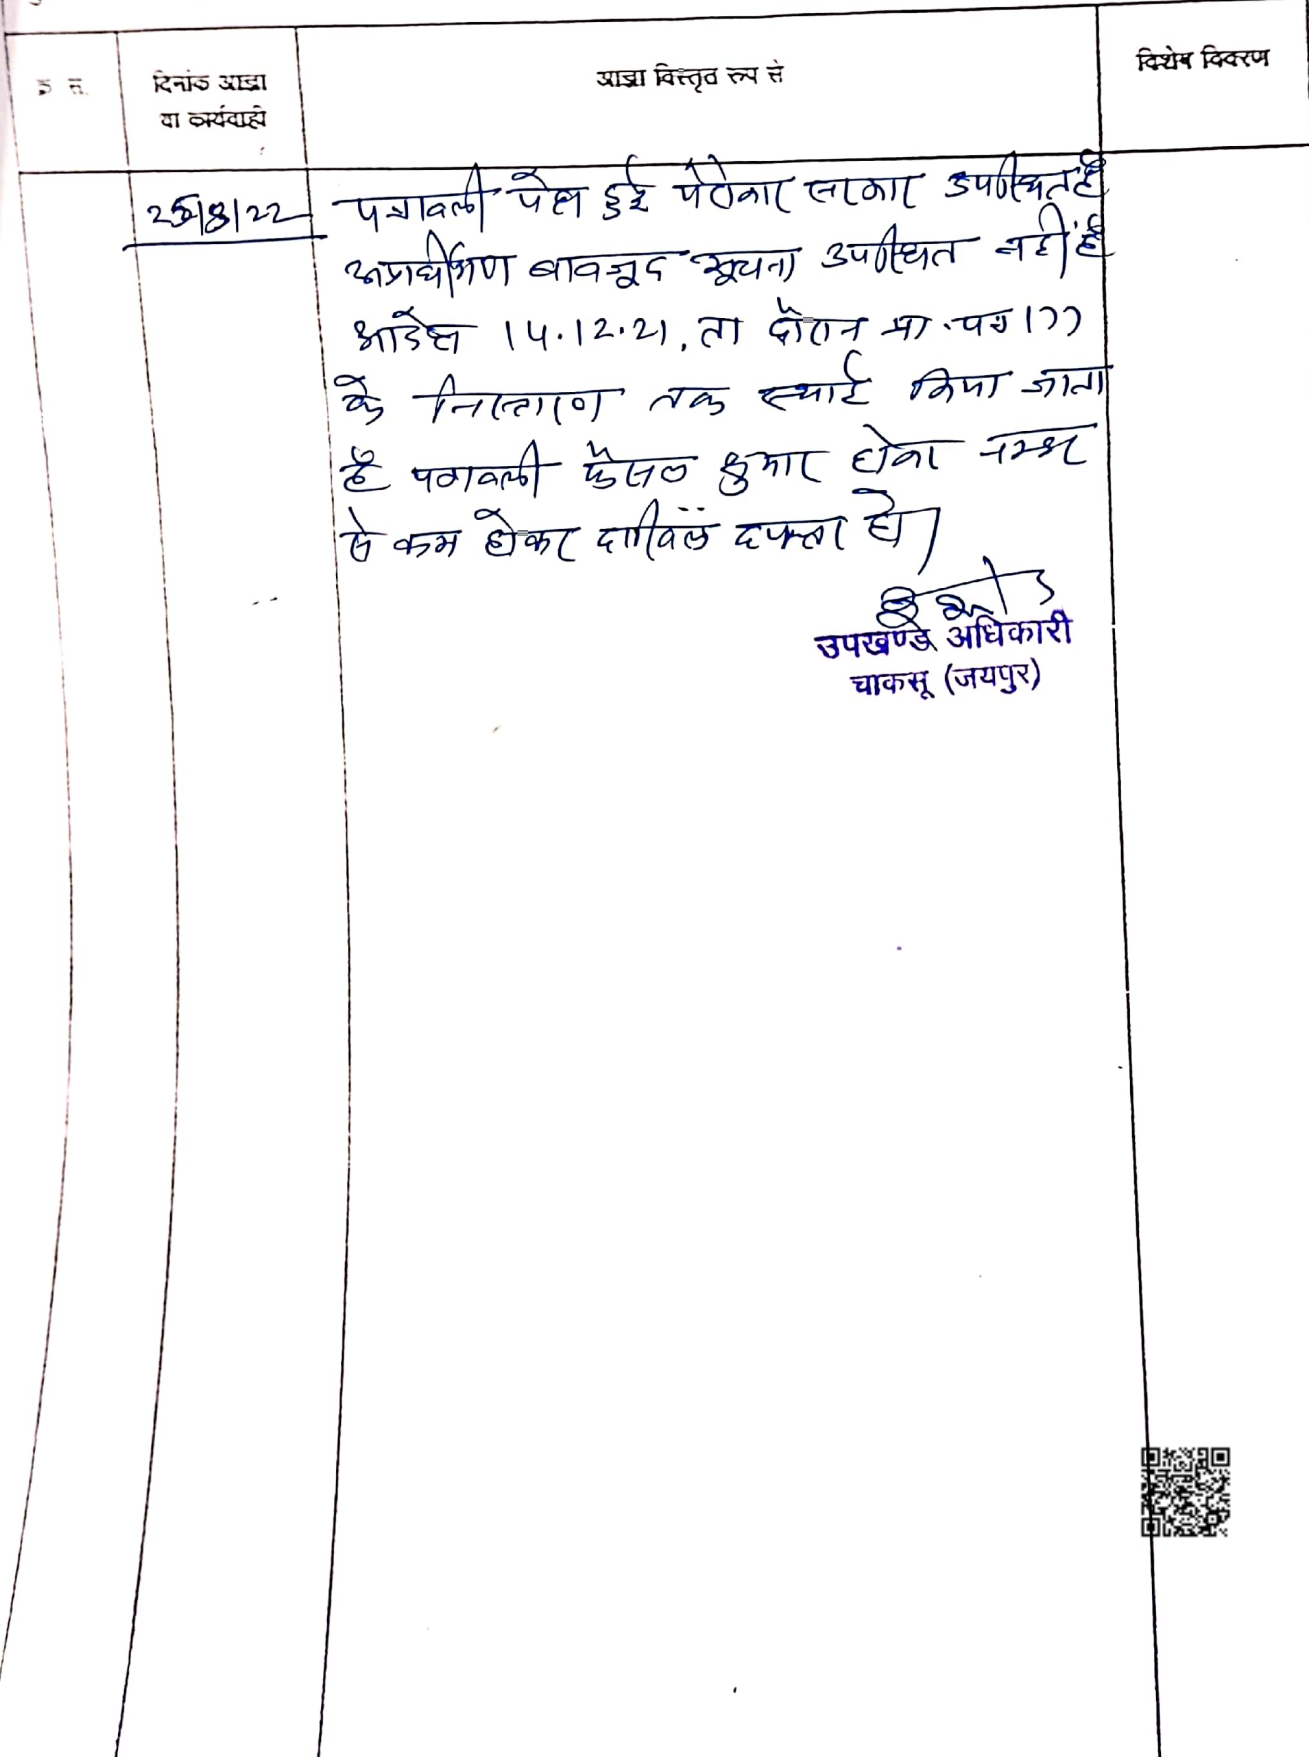 क्र सं. दिनांक आज्ञा या कार्यवाही आज्ञा विस्तृत रूप से विशेष विवरण
25/8/22 पत्रावली पेश हुई पेरोकार सरकार उपस्थित है
अप्रार्थीगण बावजूद सूचना उपस्थित नहीं है
आदेश 14.12.21, ता दौरान प्रा. पत्र 177
के निस्तारण तक स्थाई किया जाता
है पत्रावली फैसल शुमार होकर नम्बर
से कम होकर दाखिल दफ्तर हो।
उपखण्ड अधिकारी
चाकसू (जयपुर)